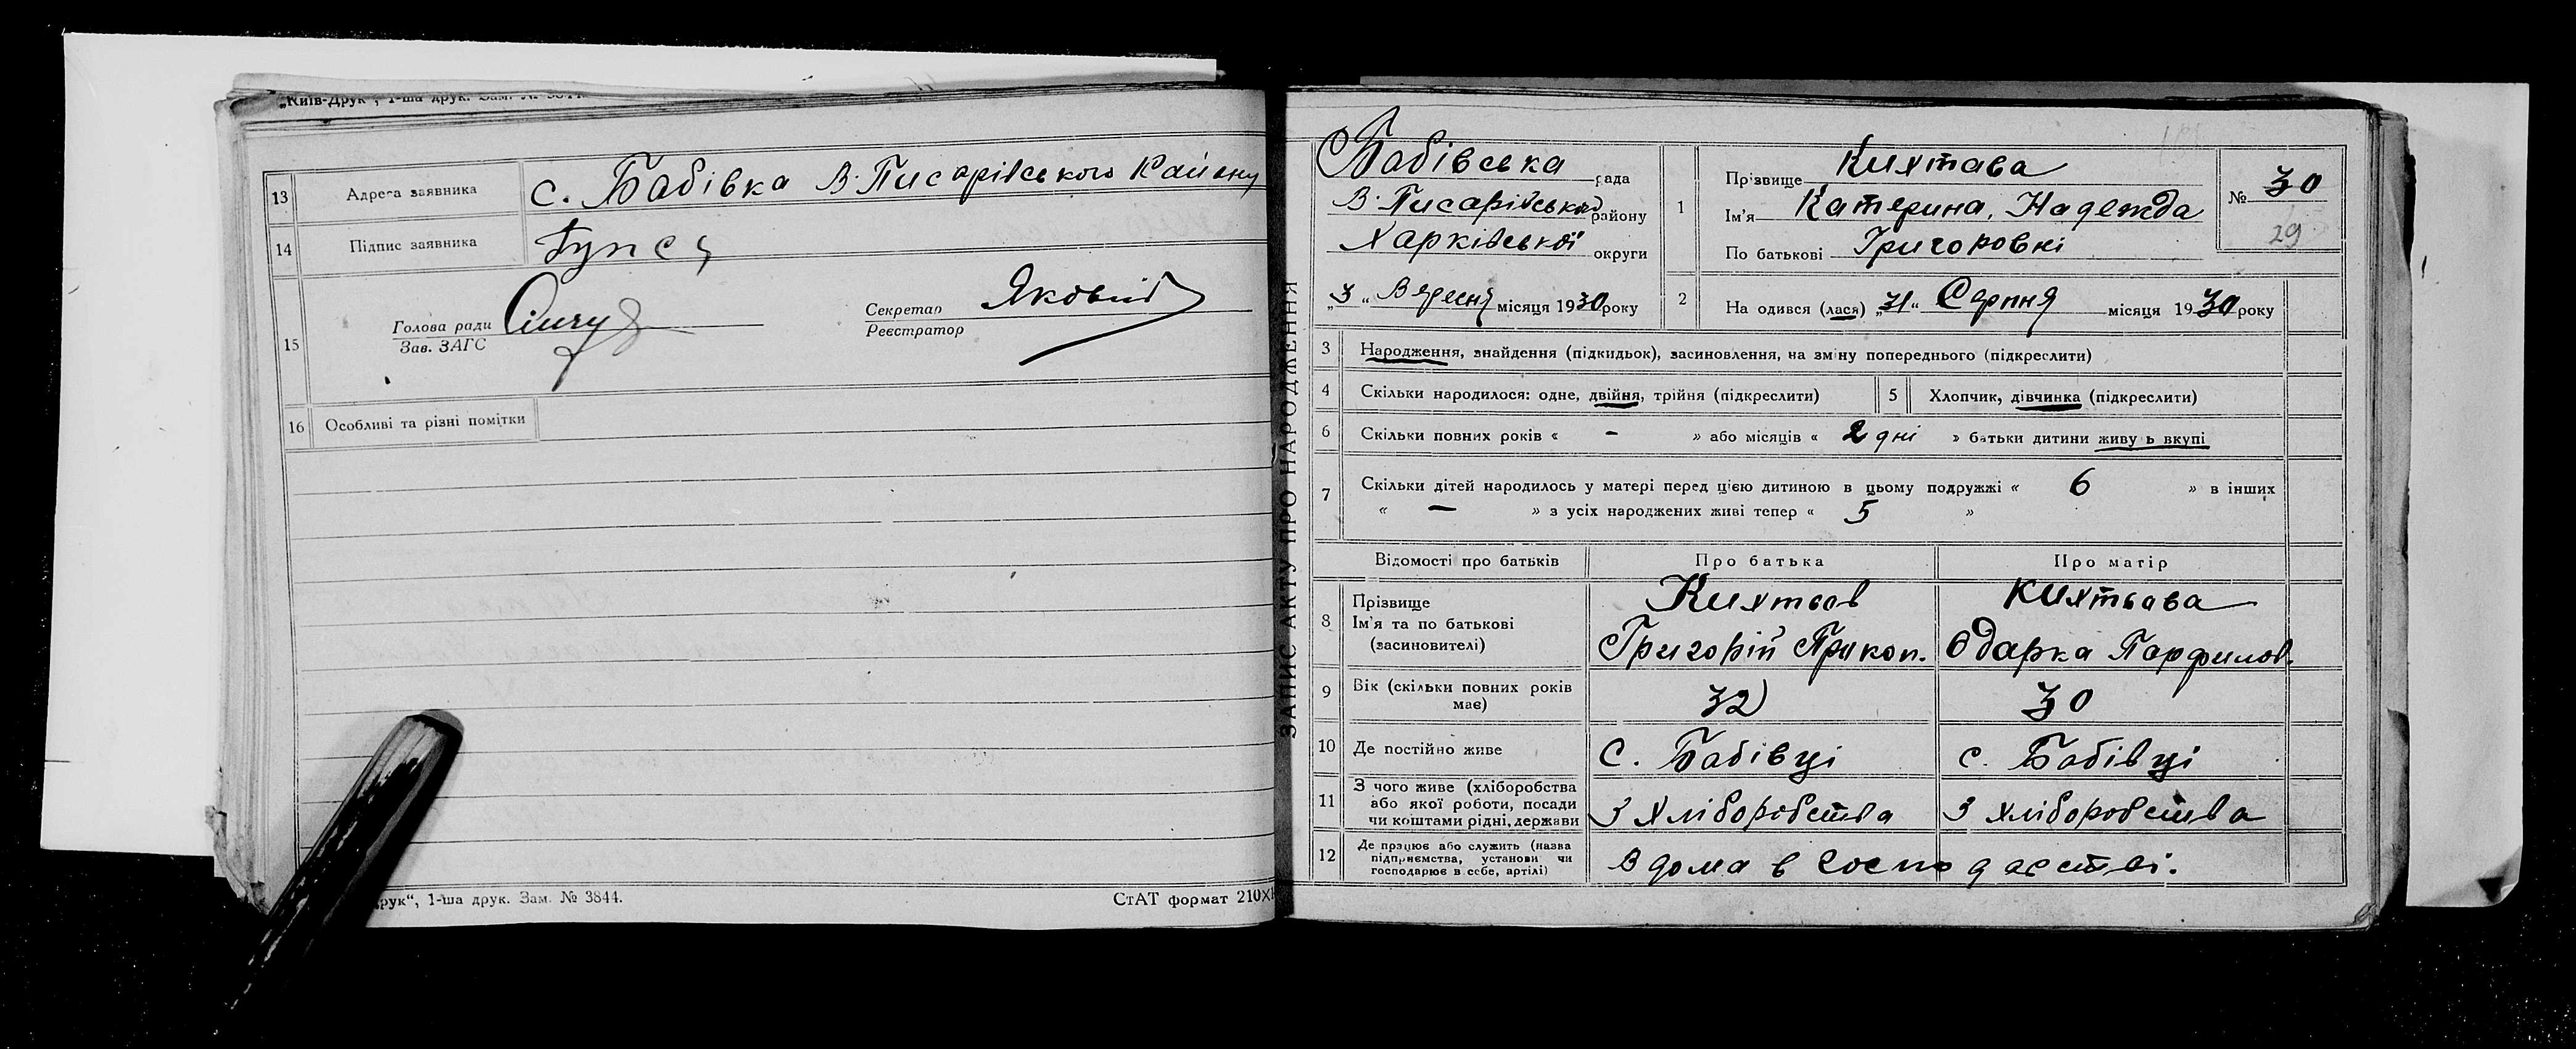 „Київ-Друк", 1-ша друк. Зам. №
13 Адреса заявника с. Бабівка В-Писарівського Району
14 Підпис заявника
15 Голова ради
Зав. ЗАГС
Секретар
Реєстратор
16 Особливі та різні помітки
друк", 1-ша друк. Зам. № 3844.
СтАТ формат 210X
ЗАПИС АКТУ ПРО НАРОДЖЕННЯ
Бабівська рада
В-Писарівського району
Харківської округи
„3" Вересня місяця 1930 року
1 Прізвище Кихтава
Ім'я Катерина, Надежда
По батькові Григоровні
№ 30
29
2 На одився (лася) „31" Серпня місяця 1930 року
3 Народження, знайдення (підкидьок), засиновлення, на зміну попереднього (підкреслити)
4 Скільки народилося: одне, двійня, трійня (підкреслити)
5 Хлопчик, дівчинка (підкреслити)
6 Скільки повних років « - » або місяців « 2 дні » батьки дитини живу ь вкупі
7 Скільки дітей народилось у матері перед цією дитиною в цьому подружжі « 6 » в інших
« — » з усіх народжених живі тепер « 5 »
Відомості про батьків Про батька Про матір
8 Прізвище Кихтьов Кихтьова
Ім'я та по батькові
(засиновителі) Григорій Прикоп. Одарка Парфилов.
9 Вік (скільки повних років
має) 32 30
10 Де постійно живе С. Бабівці с. Бабівці
11 З чого живе (хліборобства
або якої роботи, посади
чи коштами рідні, держави З хліборобства З хліборобства
12 Де працює або служить (назва
підприємства, установи чи
господарює в себе, артілі) Вдома в господарстві.